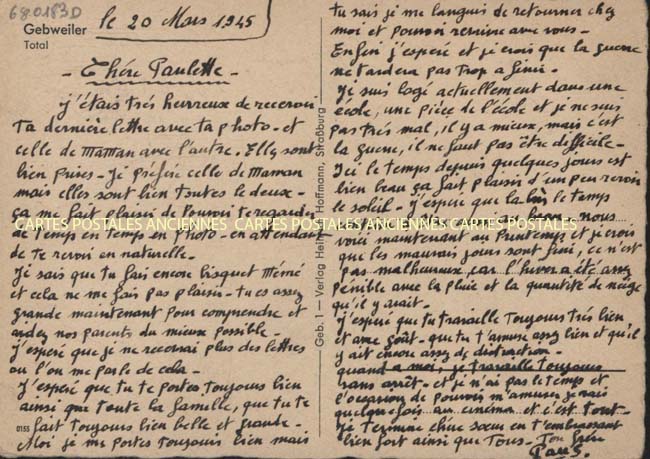 680183D
Gebweiler
Total
le 20 Mars 1945
- Chére Paulette -
j'étais trés heurreux de recevoir
ta derniére lettre avec ta photo - et
celle de Maman avec l'autre. Elles sont
bien prises - je préfére celle de Maman
mais elles sont bien toutes le deux -
ça me fait plaisir de Pouvoir te regarder
de temps en temps en photo - en attendant
de te revoir en naturelle.
je sais que tu fais encore bisquet Mémé
et cela ne me fais pas plaisir - tu es assez
grande maintenant pour comprendre et
aidez nos parents du mieux possible -
j'esperé que je ne recevrai plus des lettres
ou l'on me parle de cela -
j'esperé que tu te portes toujours bien
ainsi que toute la famille, que tu te
fait toujours bien belle et grande -
Moi je me portes toujours bien mais
0155
Geb. I — Verlag Hoffmann, Straßburg
tu sais je me languis de retourner chez
moi et pouvoir revivre avec vous -
Enfin j'esperé et je crois que la guerre
ne tardera pas trop a finir -
je suis logé actuellement dans une
école, une piéce de l'école et je ne suis
pas trés mal, il y a mieux, mais c'est
la guerre, il ne faut pas être difficile -
Ici le temps depuis quelques jours est
bien beau ça fait plaisir d'un peu revoir
le soleil - j'espere que la bàs le temps
nous
voici maintenant au Printemps et je crois
que les mauvais jours sont fini, ce n'est
pas malheureux car l'hiver a été assez
pénible avec la pluie et la quantité de neige
qu'il y avait -
j'esperé que tu travaille toujours trés bien
et avec goût - que tu t'amuse assez bien et qu'il
y ait encore assez de distraction -
quand a moi, je travaille toujours
sans arrêt - et je n'ai pas le temps et
l'occasion de pouvoir m'amuser, je vais
quelque fois au cinema et c'est tout -
je termine chere sœur en t'embrassant
bien fort ainsi que Tous - Ton frére
Paul S.
CARTES POSTALES ANCIENNES CARTES POSTALES ANCIENNES CARTES POSTALES ANCIENNES